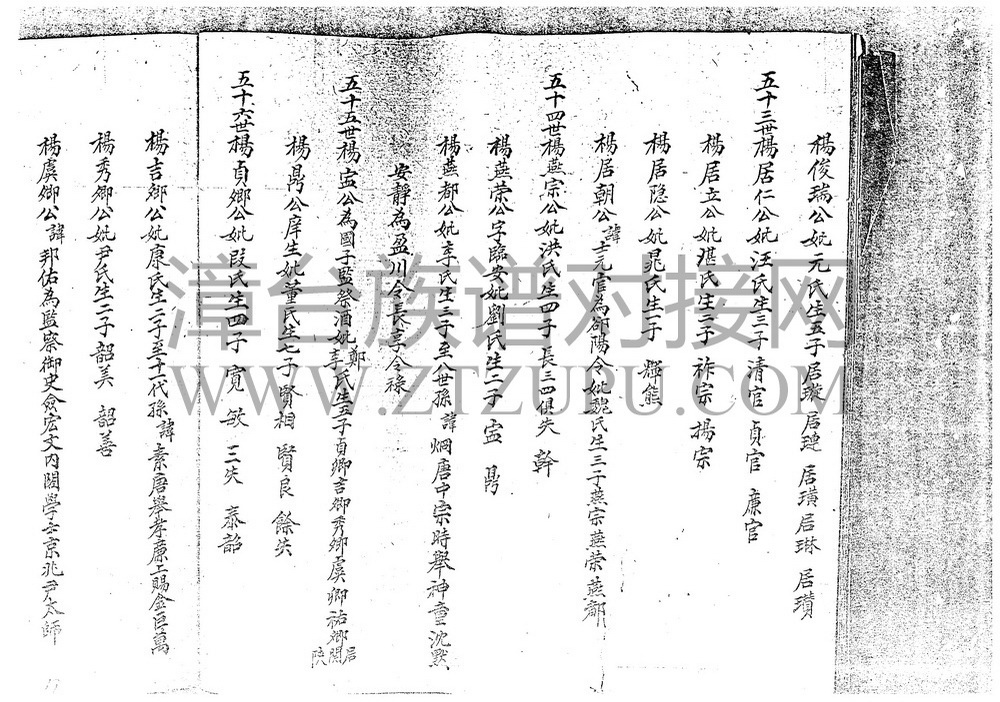 楊俊瑞公妣元氏生五子居璇 居璉 居璜 居琳 居瓚
五十三世楊居仁公妣汪氏生三子清官 貞官 廉官
楊居立公妣湛氏生二子祚宗 揚宗
楊居隐公妣晁氏生子 熊
楊居朝公諱士元官為郃陽令妣魏氏生三子燕宗燕荣燕都
五十四世楊燕宗公妣洪氏生四子長三四俱失 幹
楊燕荣公字臨安妣劉氏生二子 寍 鼎
楊燕都公妣李氏生三子至八世孫諱烱唐中宗時舉神童沈默
安靜為盈川令長享令祿
五十五世楊寍公為國子監祭酒妣鄭李氏生五子貞卿吉卿秀卿虞卿祐卿居關陝
楊鼎公庠生妣董氏生七子賢相 賢良 餘失
五十六世楊貞卿公妣段氏生四子 寬 敏 三失 泰韶
楊吉卿公妣康氏生二子至十一代孫諱素唐舉孝廉上賜金巨萬
楊秀卿公妣尹氏生二子韶美 韶善
楊虞卿公諱邦佑為監察御史僉宏文內閣學士京兆尹太師
漳台族谱对接网
WWW.ZTZUPU.COM